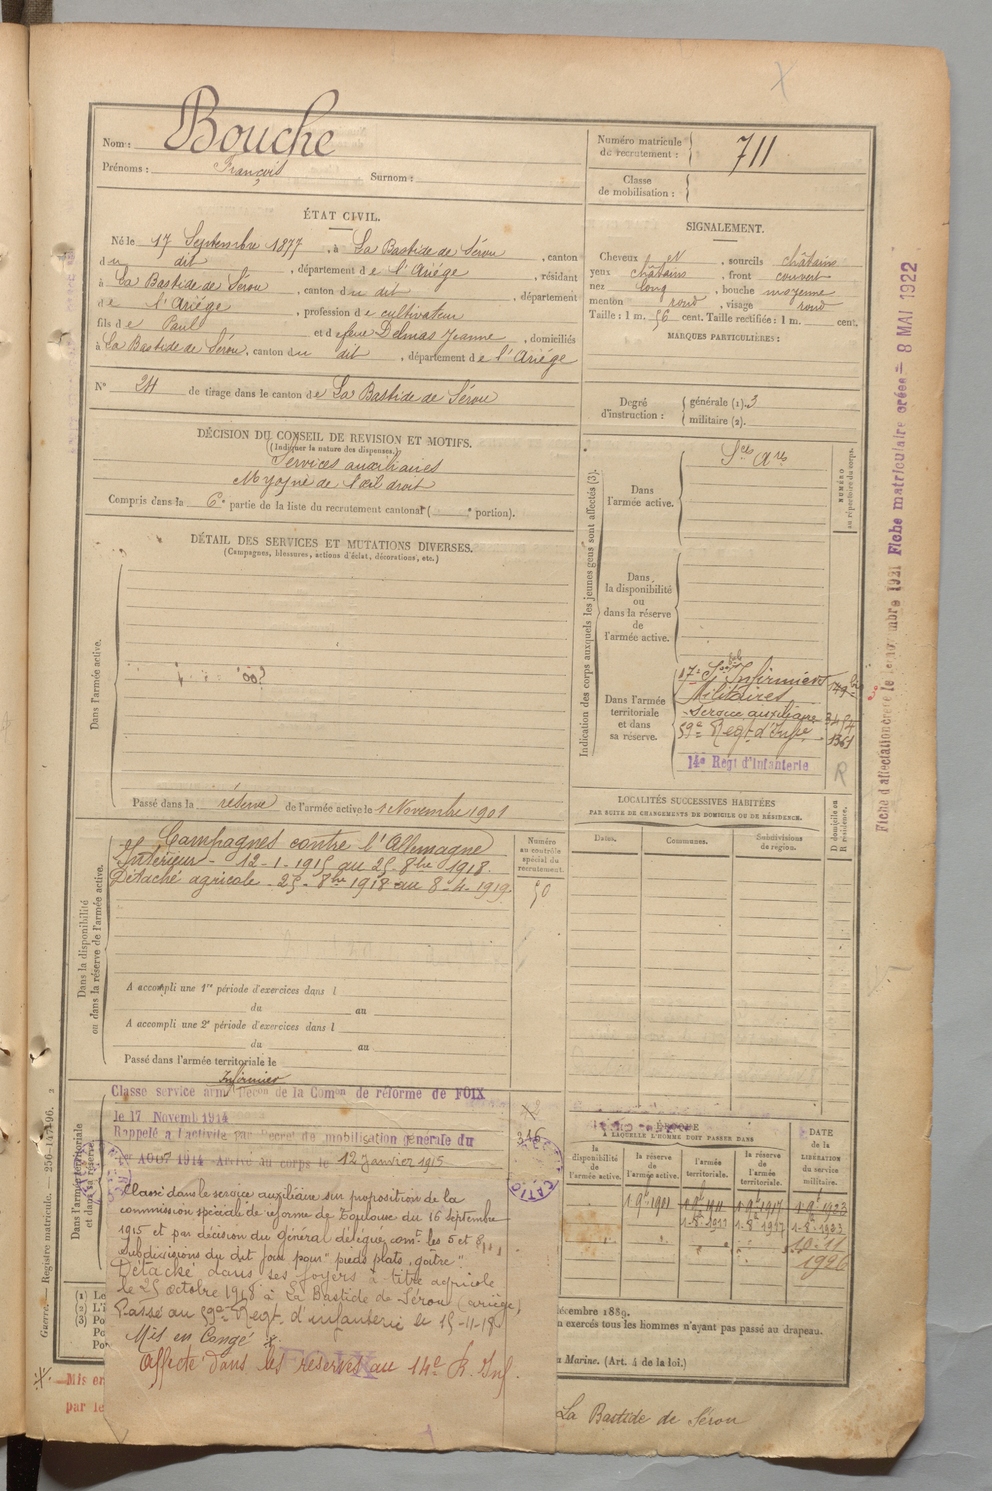 Nom : Bouche
Prénoms : François Surnom :
Numéro matricule
du recrutement : 711
Classe
de mobilisation :
ÉTAT CIVIL.
Né le 17 Septembre 1877, à La Bastide de Sérou, canton
du dit, département de l'Ariège, résidant
à La Bastide de Sérou, canton du dit, département
de l'Ariège, profession de cultivateur
fils de Paul et de feue Delmas Jeanne, domiciliés
à La Bastide de Sérou, canton du dit, département de l'Ariège
N° 24 de tirage dans le canton de La Bastide de Sérou
SIGNALEMENT.
Cheveux et, sourcils châtains
yeux châtains, front couvert
nez long, bouche moyenne
menton rond, visage rond
Taille : 1 m. 56 cent. Taille rectifiée : 1 m. cent.
MARQUES PARTICULIÈRES :
Degré
d'instruction :
générale (1). 3
militaire (2).
DÉCISION DU CONSEIL DE REVISION ET MOTIFS.
(Indiquer la nature des dispenses.)
Services auxiliaires
Myopie de l'œil droit
Compris dans la 6e partie de la liste du recrutement cantonal ( e portion).
DÉTAIL DES SERVICES ET MUTATIONS DIVERSES.
(Campagnes, blessures, actions d'éclat, décorations, etc.)
Dans l'armée active.
Passé dans la réserve de l'armée active le 1 Novembre 1901
Indication des corps auxquels les jeunes gens sont affectés (3).
NUMÉRO
au répertoire du corps.
Dans
l'armée active.
Dans
la disponibilité
ou
dans la réserve
de
l'armée active.
Dans l'armée
territoriale
et dans
sa réserve.
17e Son Infirmiers
Militaires
Service auxiliaire
59e Régt d'Infie
1361
14e Régt d'Infanterie
R
Dans la disponibilité
ou dans la réserve de l'armée active.
Campagnes contre l'Allemagne
Intérieur - 12-1-1915 au 25-8bre 1918.
Détaché agricole - 25-8bre 1918 au 8-4-1919.
Numéro
au contrôle
spécial du
recrutement.
50
A accompli une 1re période d'exercices dans l
du au
A accompli une 2e période d'exercices dans l
du au
Passé dans l'armée territoriale le
LOCALITÉS SUCCESSIVES HABITÉES
PAR SUITE DE CHANGEMENTS DE DOMICILE OU DE RÉSIDENCE.
Dates.
Communes.
Subdivisions
de région.
D domicile ou
R résidence.
Dans l'armée territoriale
et dans sa réserve.
Infirmier
Classe service armé Décon de la Comon de réforme de FOIX
le 17 Novemb 1914
Rappelé a l'activité par Décret de mobilisation générale du
AOUT 1914 Arrivé au corps le 12 janvier 1915
Classé dans le service auxiliaire sur proposition de la
commission spéciale de réforme de Toulouse du 16 septembre
1915 et par décision du Général délégué comt les 5 et
subdivisions du dit jour pour "pieds plats, goitre".
Détaché dans ses foyers à titre agricole
le 25 octobre 1918 à La Bastide de Sérou (ariège)
Passé au 59e Régt d'infanterie le 15-11-18
Mis en Congé
Affecté dans les réserves au 14e R. Inf.
FOIX
ÉPOQUE
À LAQUELLE L'HOMME DOIT PASSER DANS
la
disponibilité
de
l'armée active.
la
réserve de
l'armée active.
l'armée
territoriale.
la réserve
de
l'armée
territoriale.
DATE
de la
LIBÉRATION
du service
militaire.
1 9bre 1901 1 9bre 1911 1 9bre 1917 1 9bre 1923
1-8-1913 1-8-1933
10-11
1926
décembre 1889.
n exercés tous les hommes n'ayant pas passé au drapeau.
a Marine. (Art. 4 de la loi.)
Mis en
par le
La Bastide de Sérou
Guerre. — Registre matricule. — 256-147-96.
Fiche matriculaire créée = 8 MAI 1922